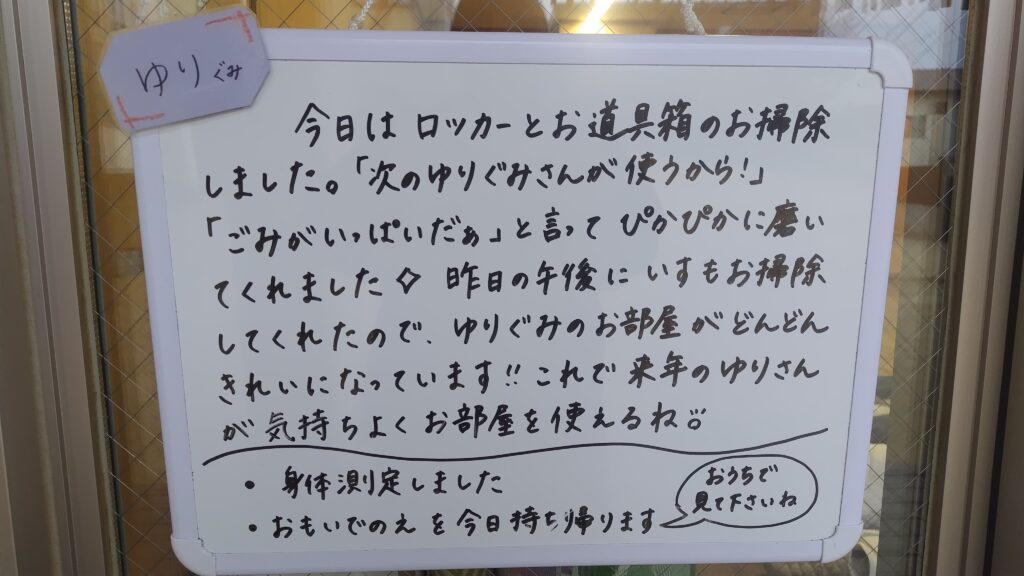 ゆりぐみ
今日はロッカーとお道具箱のお掃除
しました。「次のゆりぐみさんが使うから!」
「ごみがいっぱいだぁ」と言ってぴかぴかに磨い
てくれました◇ 昨日の午後にいすもお掃除
してくれたので、ゆりぐみのお部屋がどんどん
きれいになっています!!これで来年のゆりさん
が気持ちよくお部屋を使えるね
・身体測定しました
・おもいでのえを今日持ち帰ります
おうちで
見て下さいね